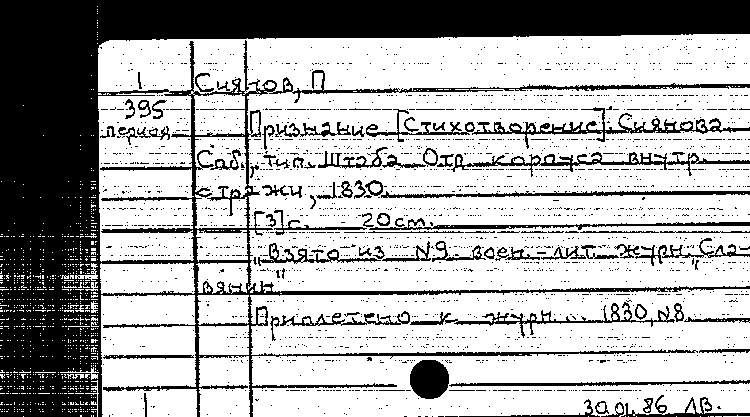 1 Сиянов, П
395
период
Признание [Стихотворение]. Сиянова
Саб., тип. Штаба Отд. корпуса внутр.
стражи, 1830.
[3] с. 20 cm.
„Взято из N9 воен.-лит. журн. „Сла-
вянин"
Приплетено к журн... 1830, N8.
1
30.01.86 ЛВ.